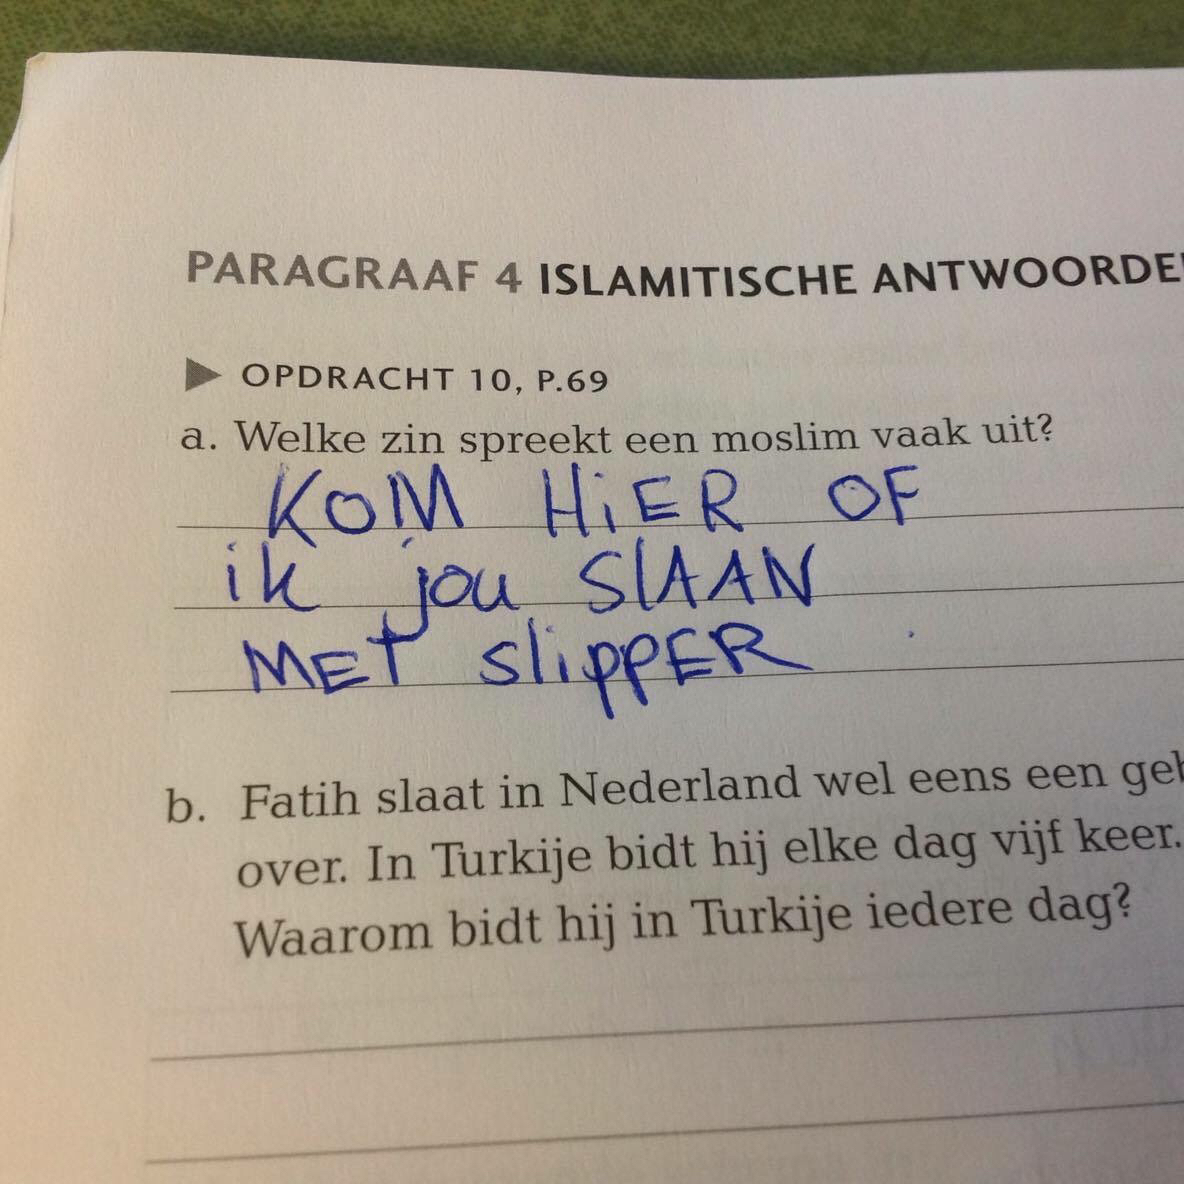 PARAGRAAF 4 ISLAMITISCHE ANTWOORDE
OPDRACHT 10, P.69
a. Welke zin spreekt een moslim vaak uit?
KOM HiER OF
ik jou SlAAN
MET slippER
b. Fatih slaat in Nederland wel eens een geb
over. In Turkije bidt hij elke dag vijf keer.
Waarom bidt hij in Turkije iedere dag?